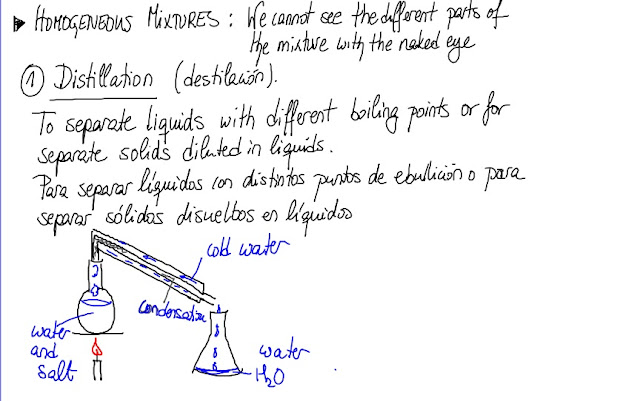 ▶ HOMOGENEOUS MIXTURES : We cannot see the different parts of
the mixture with the naked eye
① Distillation (destilación).
To separate liquids with different boiling points or for
separate solids diluted in liquids.
Para separar líquidos con distintos puntos de ebullición o para
separar sólidos disueltos en líquidos
cold water
condensation
water
and
salt
water
H₂O